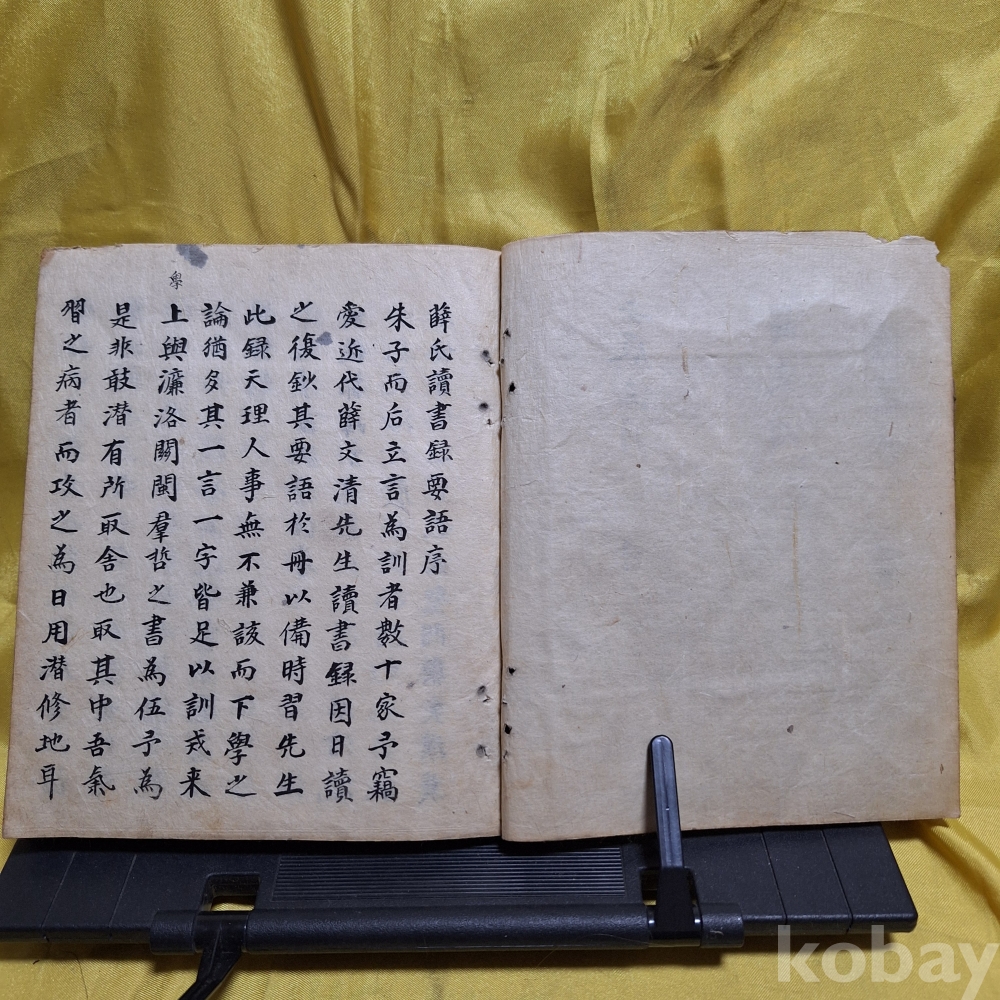 薛氏讀書録要語序
朱子而后立言為訓者數十家予竊
愛近代薛文清先生讀書録因日讀
之復鈔其要語於冊以備時習先生
此録天理人事無不兼該而下學之
論猶多其一言一字皆足以訓戒来
學
上與濂洛關閩羣哲之書為伍予為
是非敢潜有所取舍也取其中吾氣
習之病者而攻之為日用潜修地耳
kobay